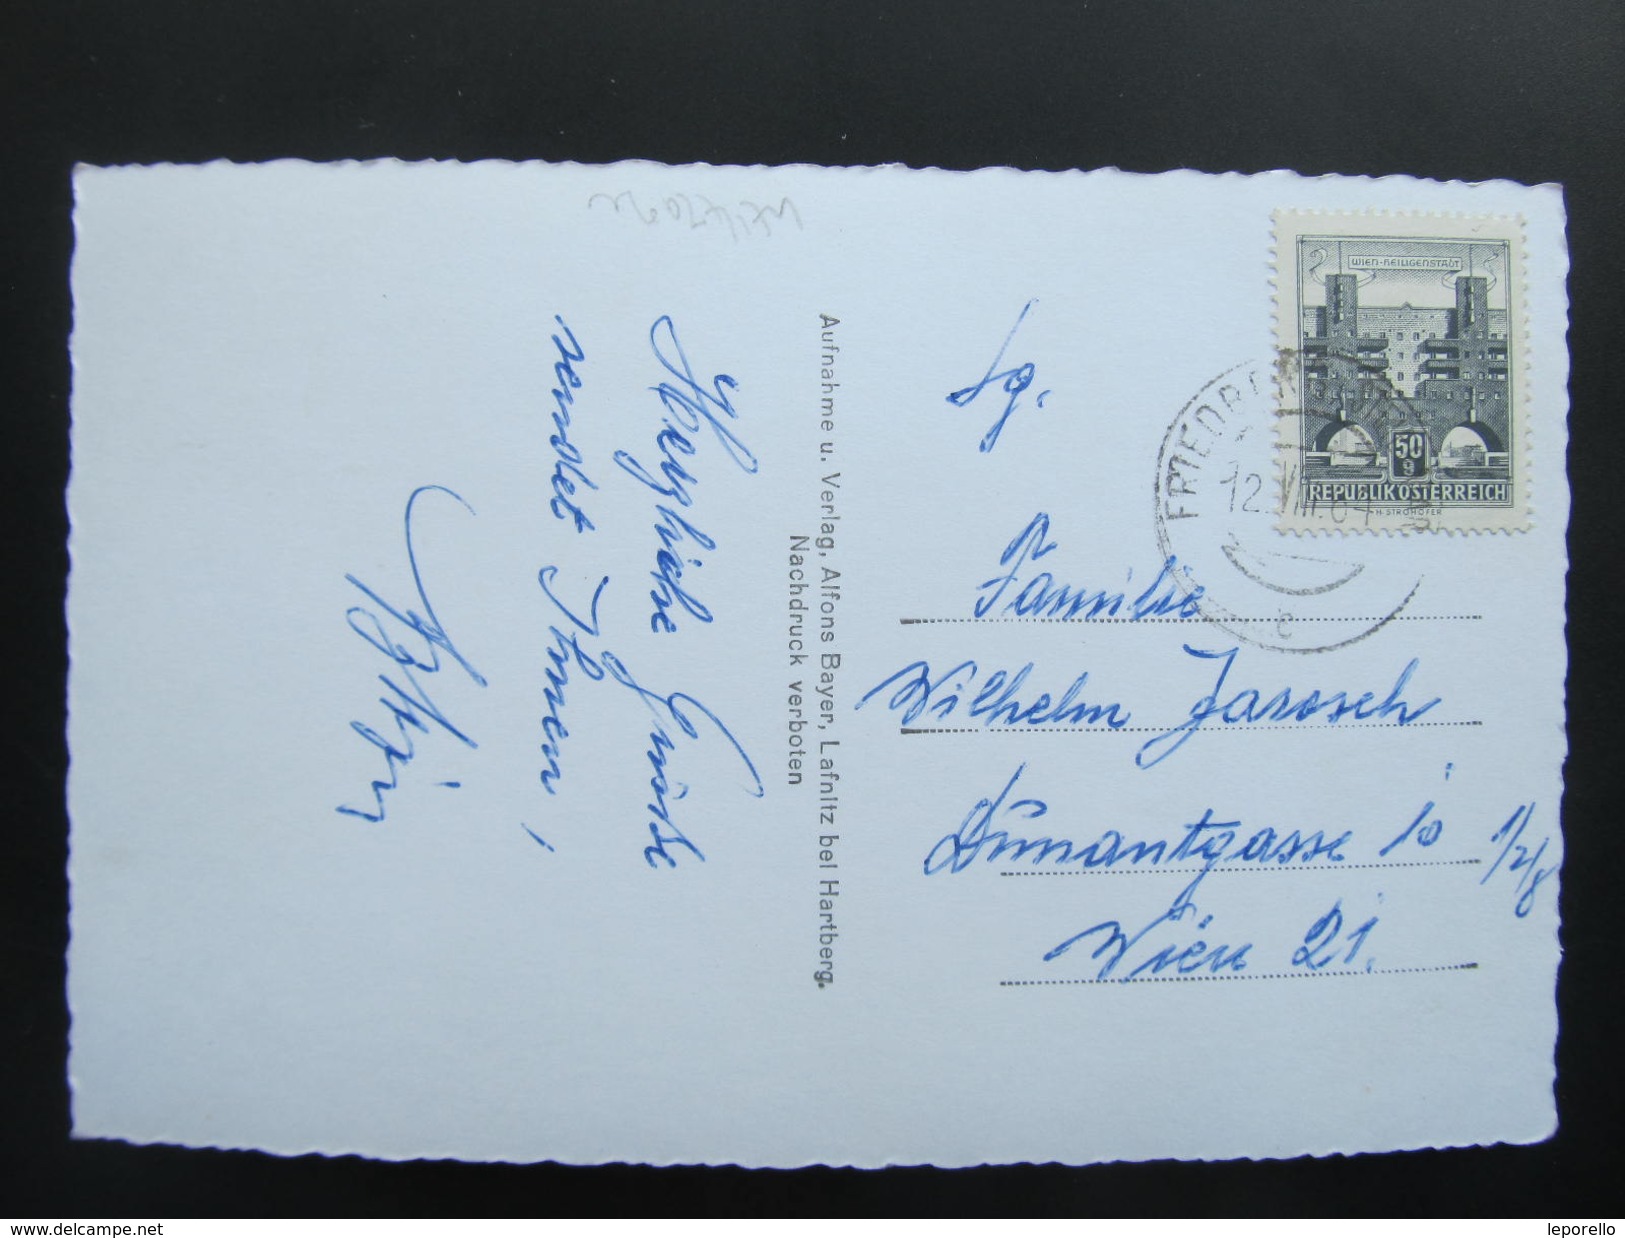 Herzliche Grüsse
sendet Ihnen,
Aufnahme u. Verlag, Alfons Bayer, Lafnitz bei Hartberg.
Nachdruck verboten
WIEN-HEILIGENSTADT
50
g
REPUBLIK ÖSTERREICH
H. STROHOFER
FRIEDBERG
12.VIII.64
c
Fg.
Familie
Wilhelm Jarosch
Dunantgasse 10 1/2/8
Wien 21.
www.delcampe.net
leporello